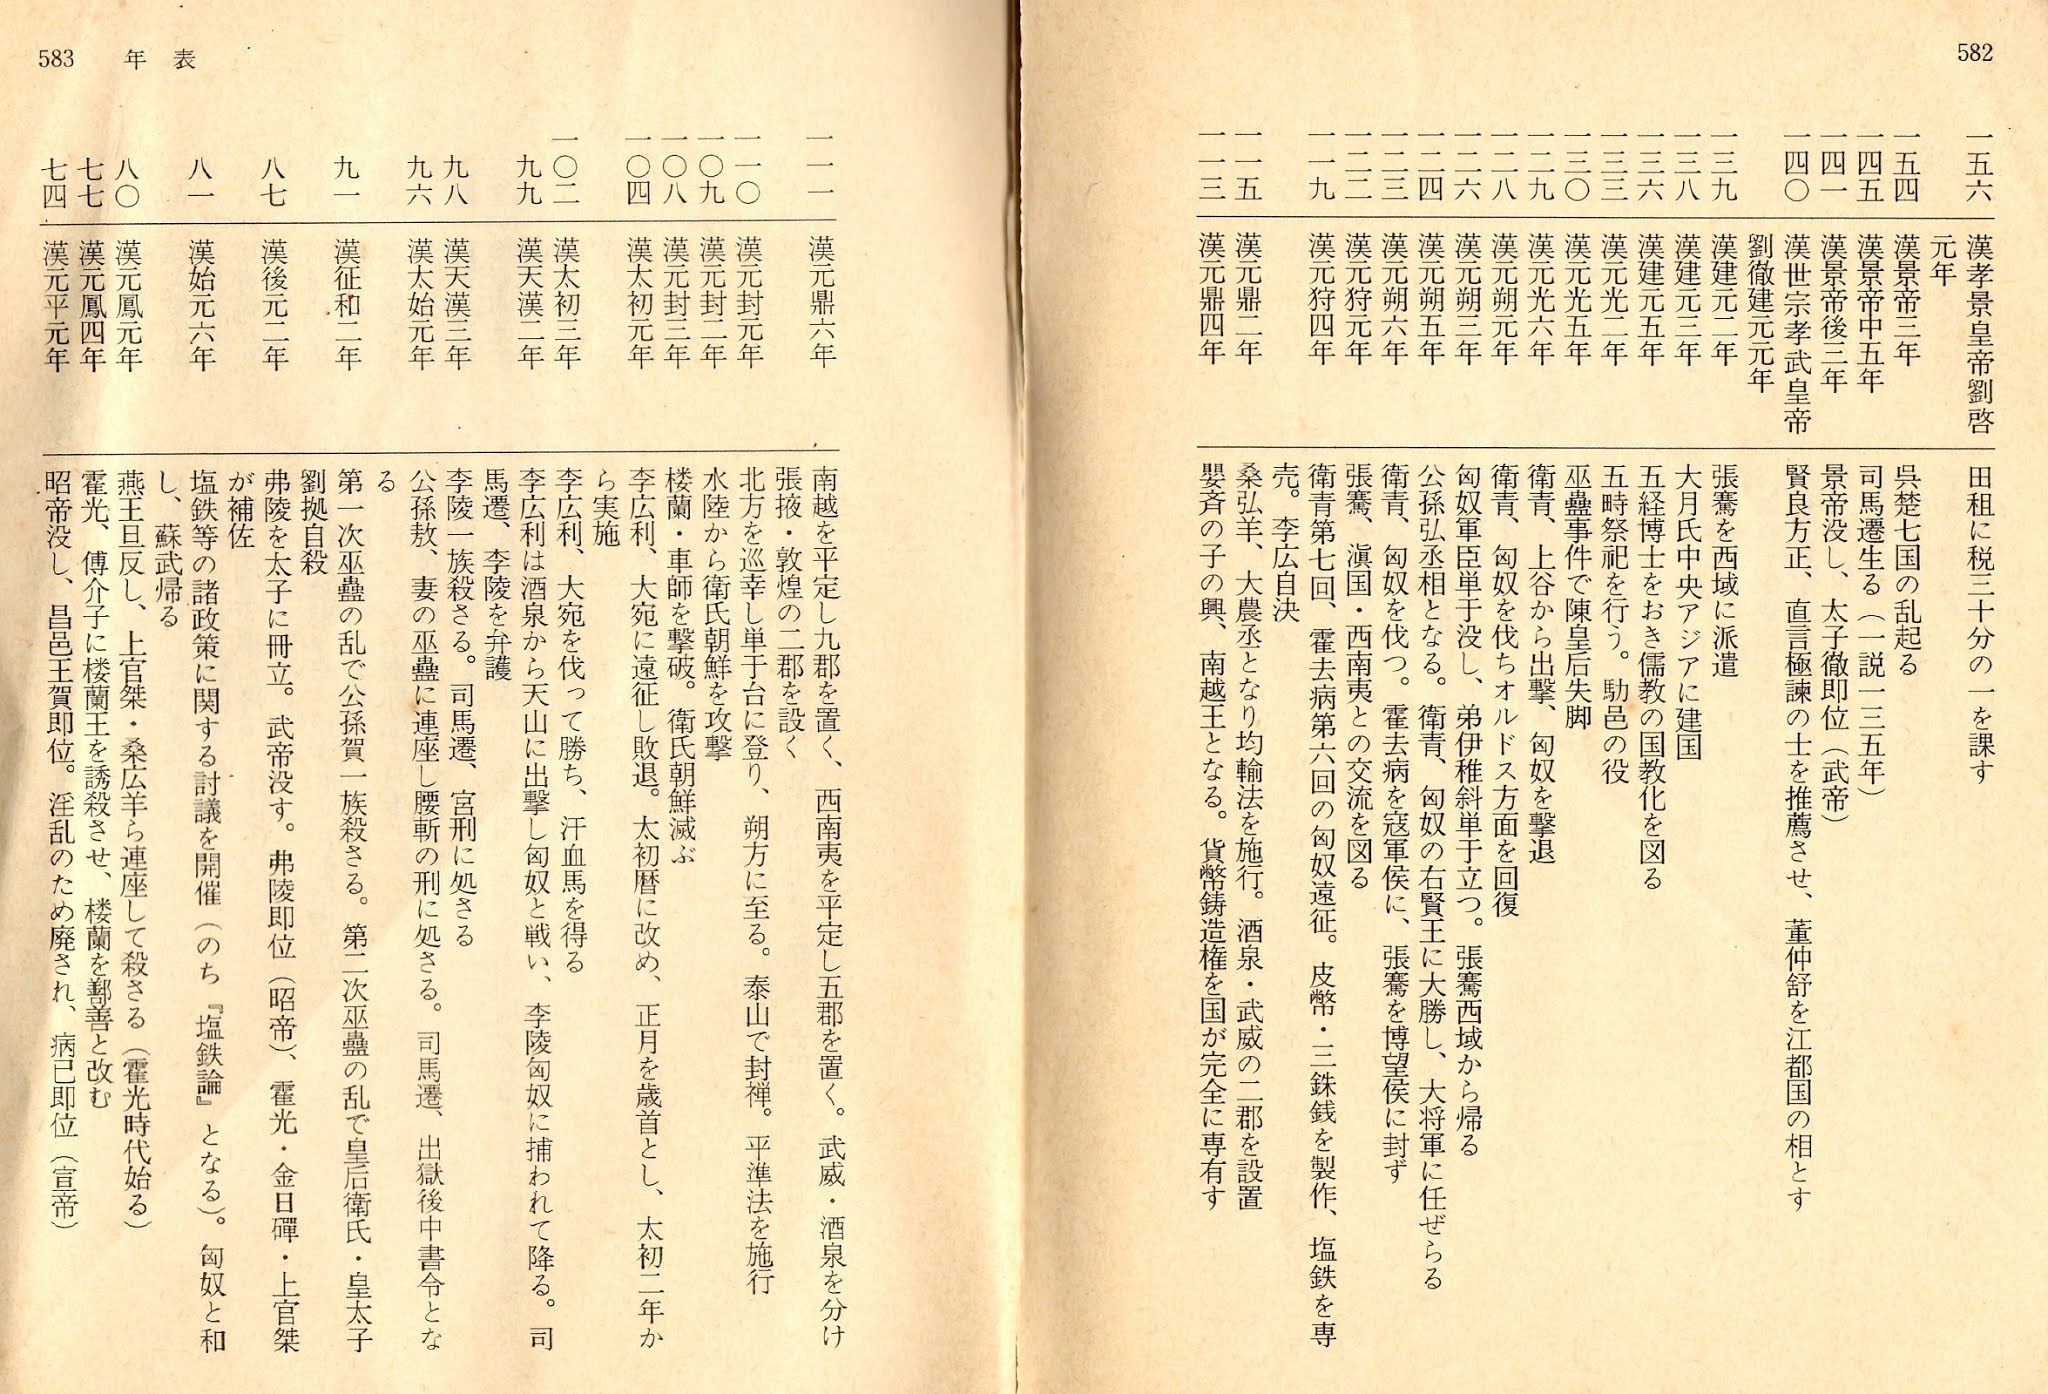 582
一五六 漢孝景皇帝劉啓 田租に税三十分の一を課す
元年
一五四 漢景帝三年 呉楚七国の乱起る
一四五 漢景帝中五年 司馬遷生る（一説一三五年）
一四一 漢景帝後三年 景帝没し、太子徹即位（武帝）
一四〇 漢世宗孝武皇帝 賢良方正、直言極諫の士を推薦させ、董仲舒を江都国の相とす
劉徹建元元年
一三九 漢建元二年 張騫を西域に派遣
一三八 漢建元三年 大月氏中央アジアに建国
一三六 漢建元五年 五経博士をおき儒教の国教化を図る
一三三 漢元光二年 五畤祭祀を行う。馬邑の役
一三〇 漢元光五年 巫蠱事件で陳皇后失脚
一二九 漢元光六年 衛青、上谷から出撃、匈奴を撃退
一二八 漢元朔元年 衛青、匈奴を伐ちオルドス方面を回復
一二六 漢元朔三年 匈奴軍臣単于没し、弟伊稚斜単于立つ。張騫西域から帰る
一二四 漢元朔五年 公孫弘丞相となる。衛青、匈奴の右賢王に大勝し、大将軍に任ぜらる
一二三 漢元朔六年 衛青、匈奴を伐つ。霍去病を寇軍侯に、張騫を博望侯に封ず
一二二 漢元狩元年 張騫、滇国・西南夷との交流を図る
一一九 漢元狩四年 衛青第七回、霍去病第六回の匈奴遠征。皮幣・三銖銭を製作、塩鉄を専
売。李広自決
一一五 漢元鼎二年 桑弘羊、大農丞となり均輸法を施行。酒泉・武威の二郡を設置
一一三 漢元鼎四年 嬰斉の子の興、南越王となる。貨幣鋳造権を国が完全に専有す
583 年表
一一一 漢元鼎六年 南越を平定し九郡を置く、西南夷を平定し五郡を置く。武威・酒泉を分け
張掖・敦煌の二郡を設く
一一〇 漢元封元年 北方を巡幸し単于台に登り、朔方に至る。泰山で封禅。平準法を施行
一〇九 漢元封二年 水陸から衛氏朝鮮を攻撃
一〇八 漢元封三年 楼蘭・車師を撃破。衛氏朝鮮滅ぶ
一〇四 漢太初元年 李広利、大宛に遠征し敗退。太初暦に改め、正月を歳首とし、太初二年か
ら実施
一〇二 漢太初三年 李広利、大宛を伐って勝ち、汗血馬を得る
九九 漢天漢二年 李広利は酒泉から天山に出撃し匈奴と戦い、李陵匈奴に捕われて降る。司
馬遷、李陵を弁護
九八 漢天漢三年 李陵一族殺さる。司馬遷、宮刑に処さる
九六 漢太始元年 公孫敖、妻の巫蠱に連座し腰斬の刑に処さる。司馬遷、出獄後中書令とな
る
九一 漢征和二年 第一次巫蠱の乱で公孫賀一族殺さる。第二次巫蠱の乱で皇后衛氏・皇太子
劉拠自殺
八七 漢後元二年 弗陵を太子に冊立。武帝没す。弗陵即位（昭帝）、霍光・金日磾・上官桀
が補佐
八一 漢始元六年 塩鉄等の諸政策に関する討議を開催（のち『塩鉄論』となる）。匈奴と和
し、蘇武帰る
八〇 漢元鳳元年 燕王旦反し、上官桀・桑広羊ら連座して殺さる（霍光時代始る）
七七 漢元鳳四年 霍光、傅介子に楼蘭王を誘殺させ、楼蘭を鄯善と改む
七四 漢元平元年 昭帝没し、昌邑王賀即位。淫乱のため廃され、病已即位（宣帝）